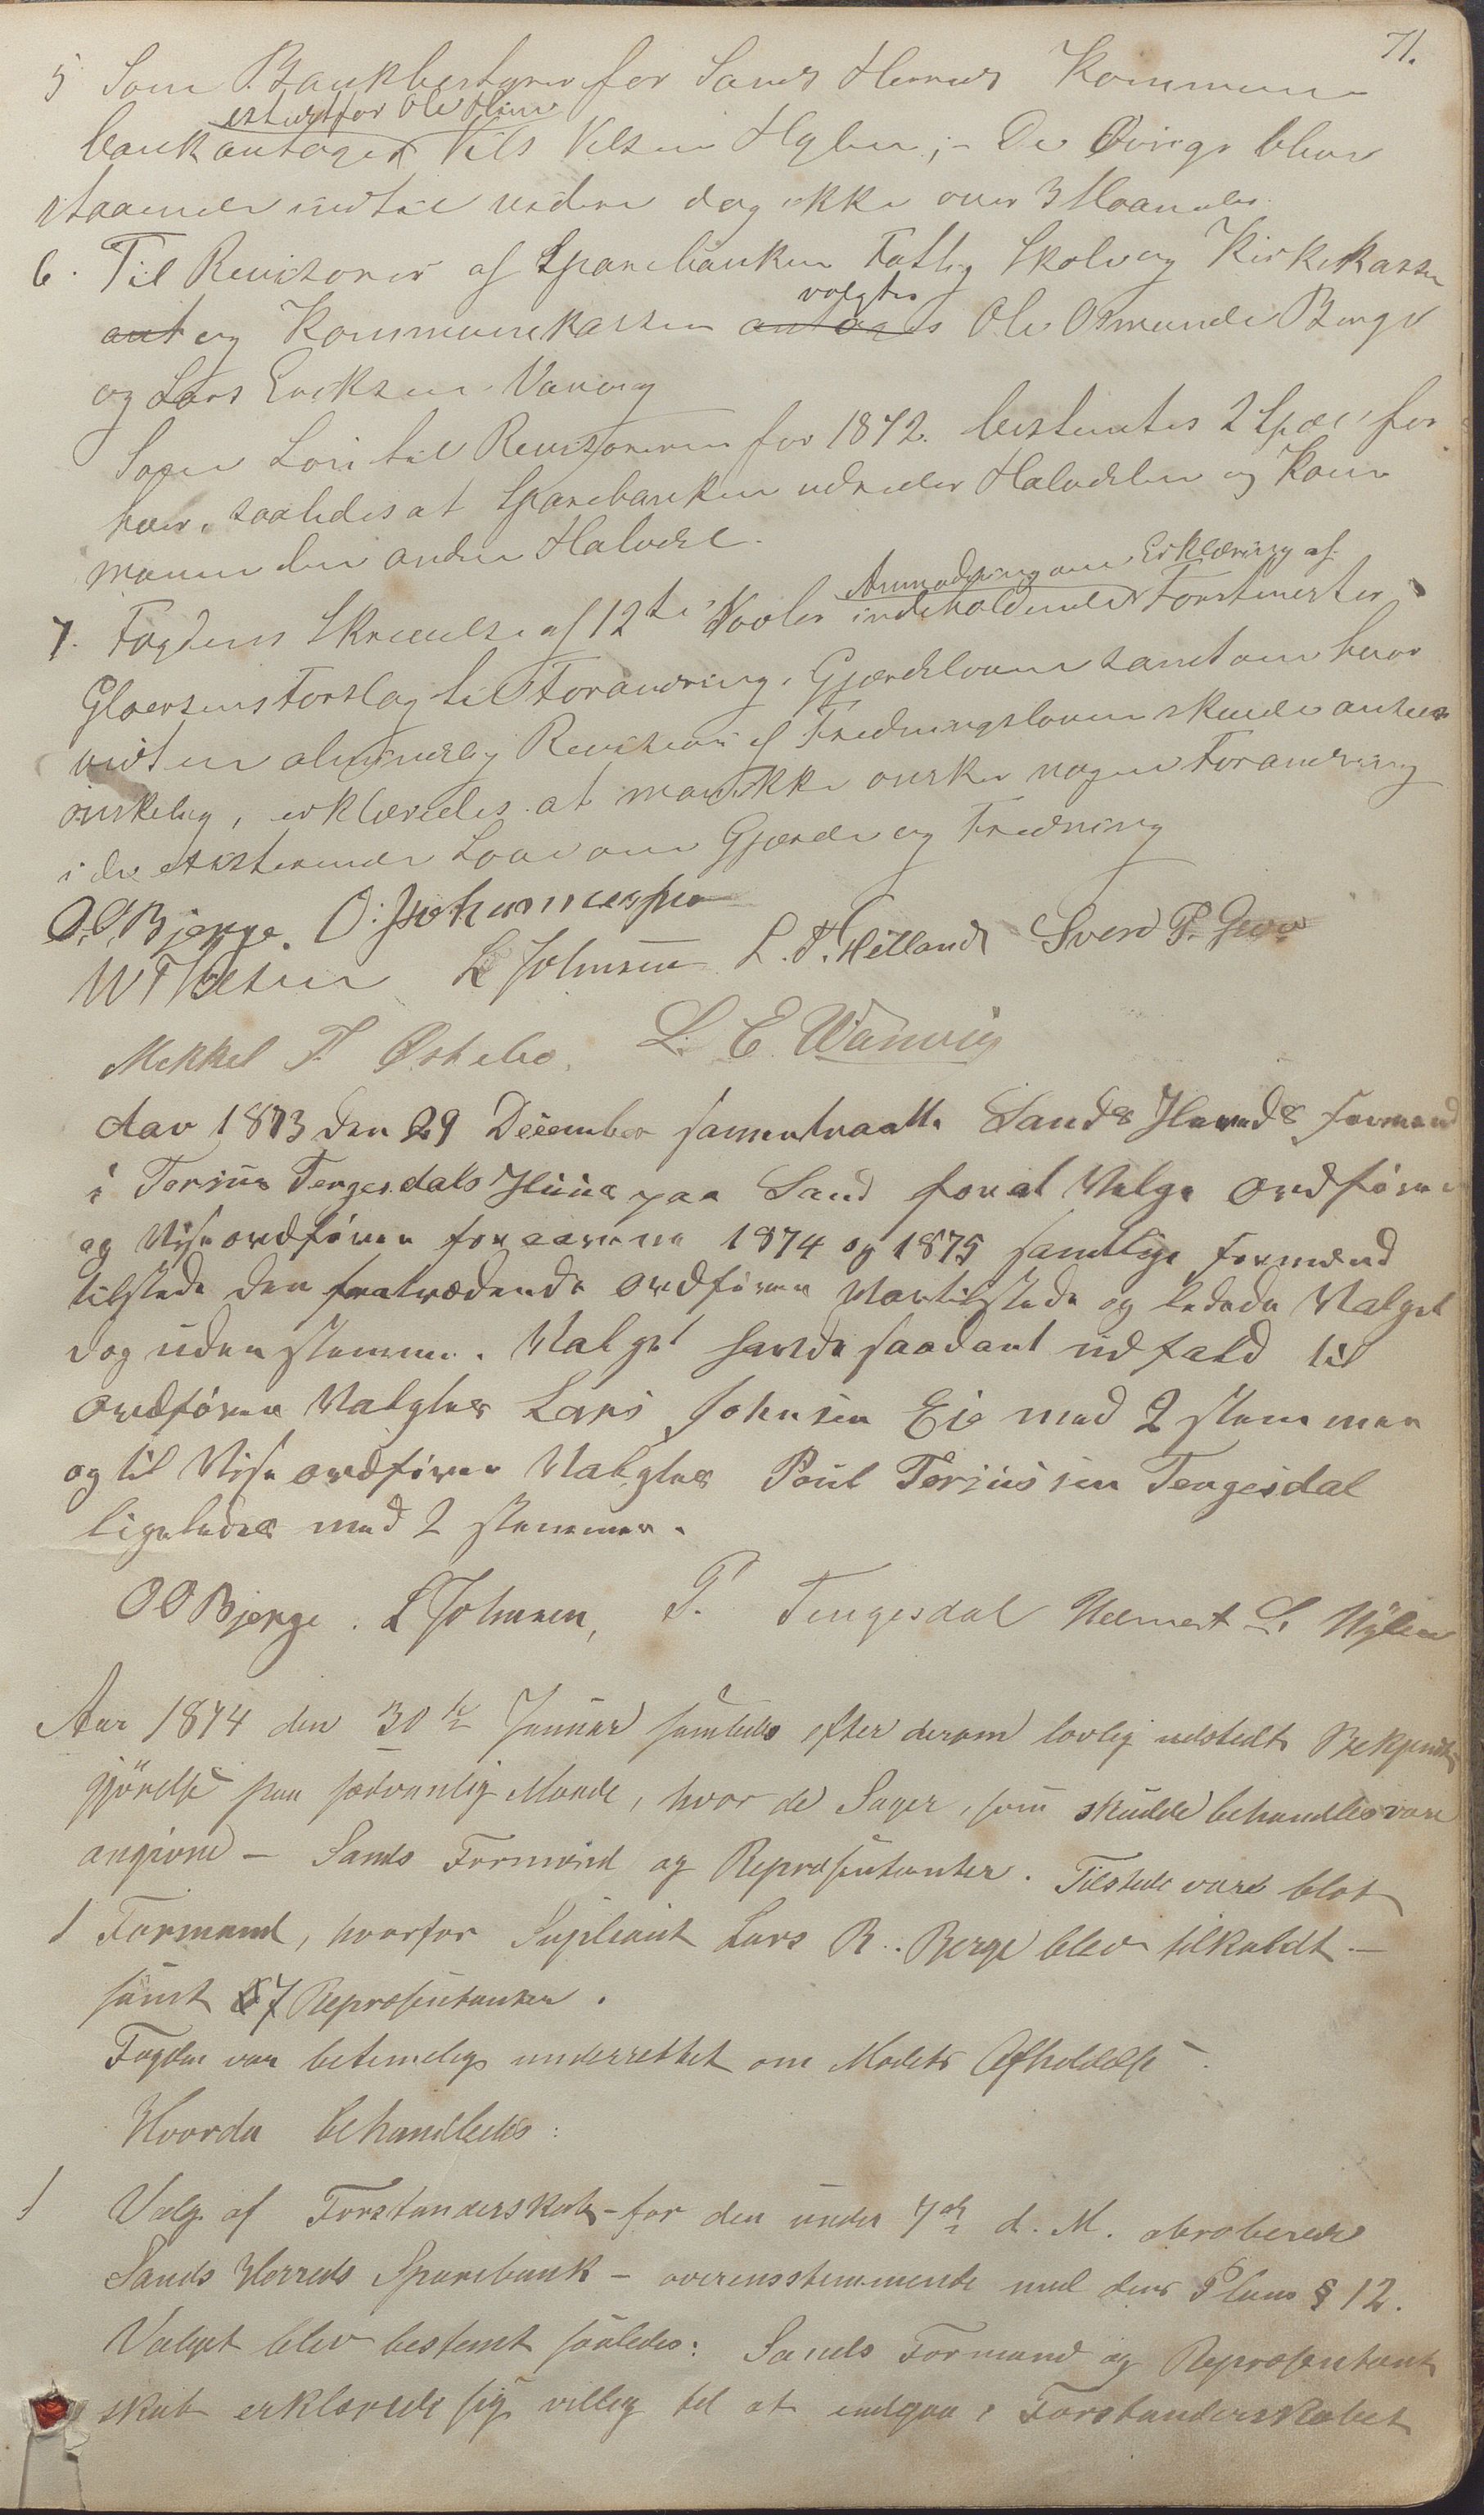 71.
5 Som Bankbestyrer for Sands Herreds Kommune-
istedetfor Ole Hiim
bank antages Nils Nilsen Hylen; - De Øvrige blive
staaende indtil videre dog ikke over 3 Maaneder.
6. Til Revisorer af Sparebanken Fattig Skole og Kirkekassen
valgtes
ant og Kommunekassen antages Ole Osmundsen Berge
og Lars Eriksen Vanvig
Som Løn til Revisorerne for 1872. bestemtes 2 Spd for
hver, saaledes at Sparebanken udreder Halvdelen og Kom
munen den anden Halvdel.
Anmodning om Erklæring af
7. Fogdens Skrivelse af 12te Novbr indeholdende Forstmester
Gløersens Forslag til Forandring i Gjærdeloven samt om hvor
vidt en almindelig Revision af Fredningsloven skulde ansees
ønskelig, erklæredes at man ikke ønsker nogen Forandring
i de existerende Love om Gjærde og Fredning
O.O. Bjerge. O: Johannessen
L Johnsen L. T. Helland Sven P.
Mikkel T. Østebø. L. E. Wanvig
Aar 1873 den 29 December sammentraatte Sands Herreds formænd
i Torjus Tengesdals Huus paa Sand for at Valge Ordfører
og Viseordfører for aarene 1874 og 1875 samtlige formænd
tilstede den fratrædende Ordfører Var tilstede og ledede Valget
dog uden stemme. Valget havde saadant udfald til
Ordfører Valgtes Lars Johnsen Eie med 2 stemmer
og til Viseordfører Valgtes Poul Torjussen Tengesdal
ligeledes med 2 stemmer.
OO Bjerge. L Johnsen, P. Tengesdal Helmert L. Hylen
Aar 1874 den 30te Januar samledes efter derom lovlig udstedt Bekjendt
gjörelse paa sædvanlig Maade, hvor de Sager, som skulde behandles vare
angivne - Sands Formænd og Repræsentanter. Tilstede vare blot
1 Formand, hvorfor Supleant Lars R. Berge blev tilkaldt. -
samt 7 Repræsentanter.
Fogden var betimelig underrettet om Mødets Afholdelse.
Hvorda behandledes:
1 Valg af Forstanderskab - for den under 7de d. M. abroberede
Sands Herreds Sparebank - overensstemmende med dens Plans § 12.
Valget blev bestemt saaledes: Sands Formænd og Repræsentant
skab erklærede sig villig til at indgaa i Forstanderskabet